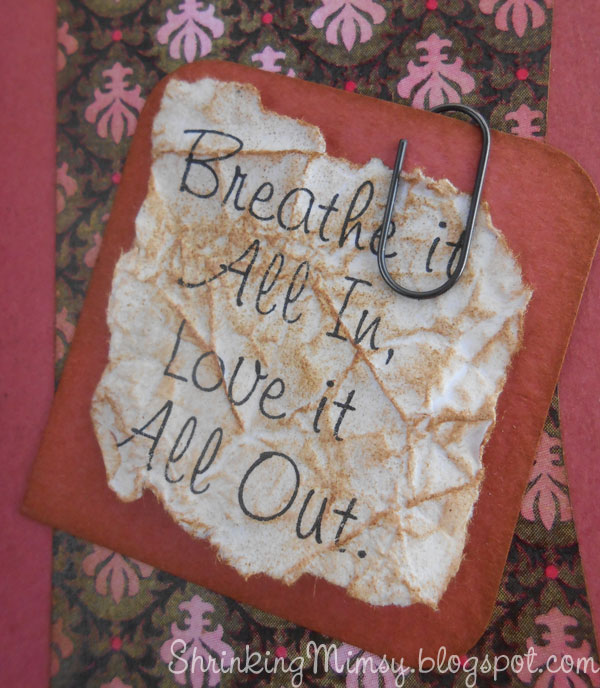 Breathe it
All In,
Love it
All Out.
ShrinkingMimsy.blogspot.com